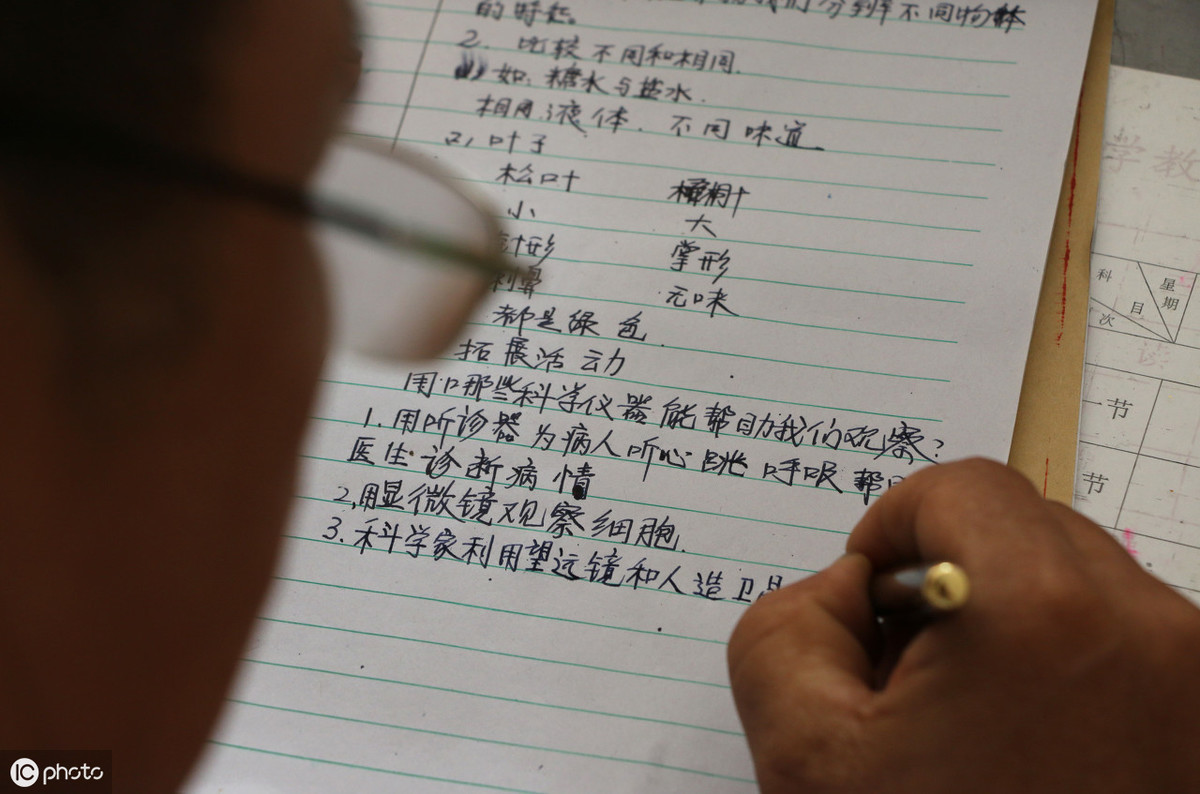 我们分辨不同物体
的特征。
2. 比较不同和相同.
如: 糖水与盐水.
相同:液体. 不同 味道
2, 叶子
松叶
小 大
针形 掌形
刺鼻 无味
都是绿色.
拓展活动
用口那些科学仪器能帮助我们观察?
1. 用听诊器为病人听心跳呼吸 帮
医生诊断病情
2, 用显微镜观察细胞.
3. 科学家利用望远镜和人造卫
学教
科
目
次
星
期
读
一节
节
IC photo